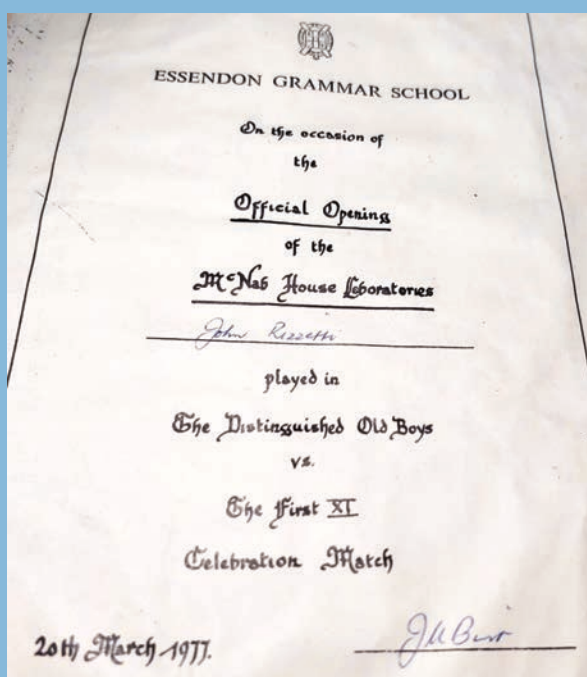 ESSENDON GRAMMAR SCHOOL
On the occasion of
the
Official Opening
of the
McNab House Laboratories
John Rizzetti
played in
The Distinguished Old Boys
vs.
The First XI
Celebration Match
20th March 1977.